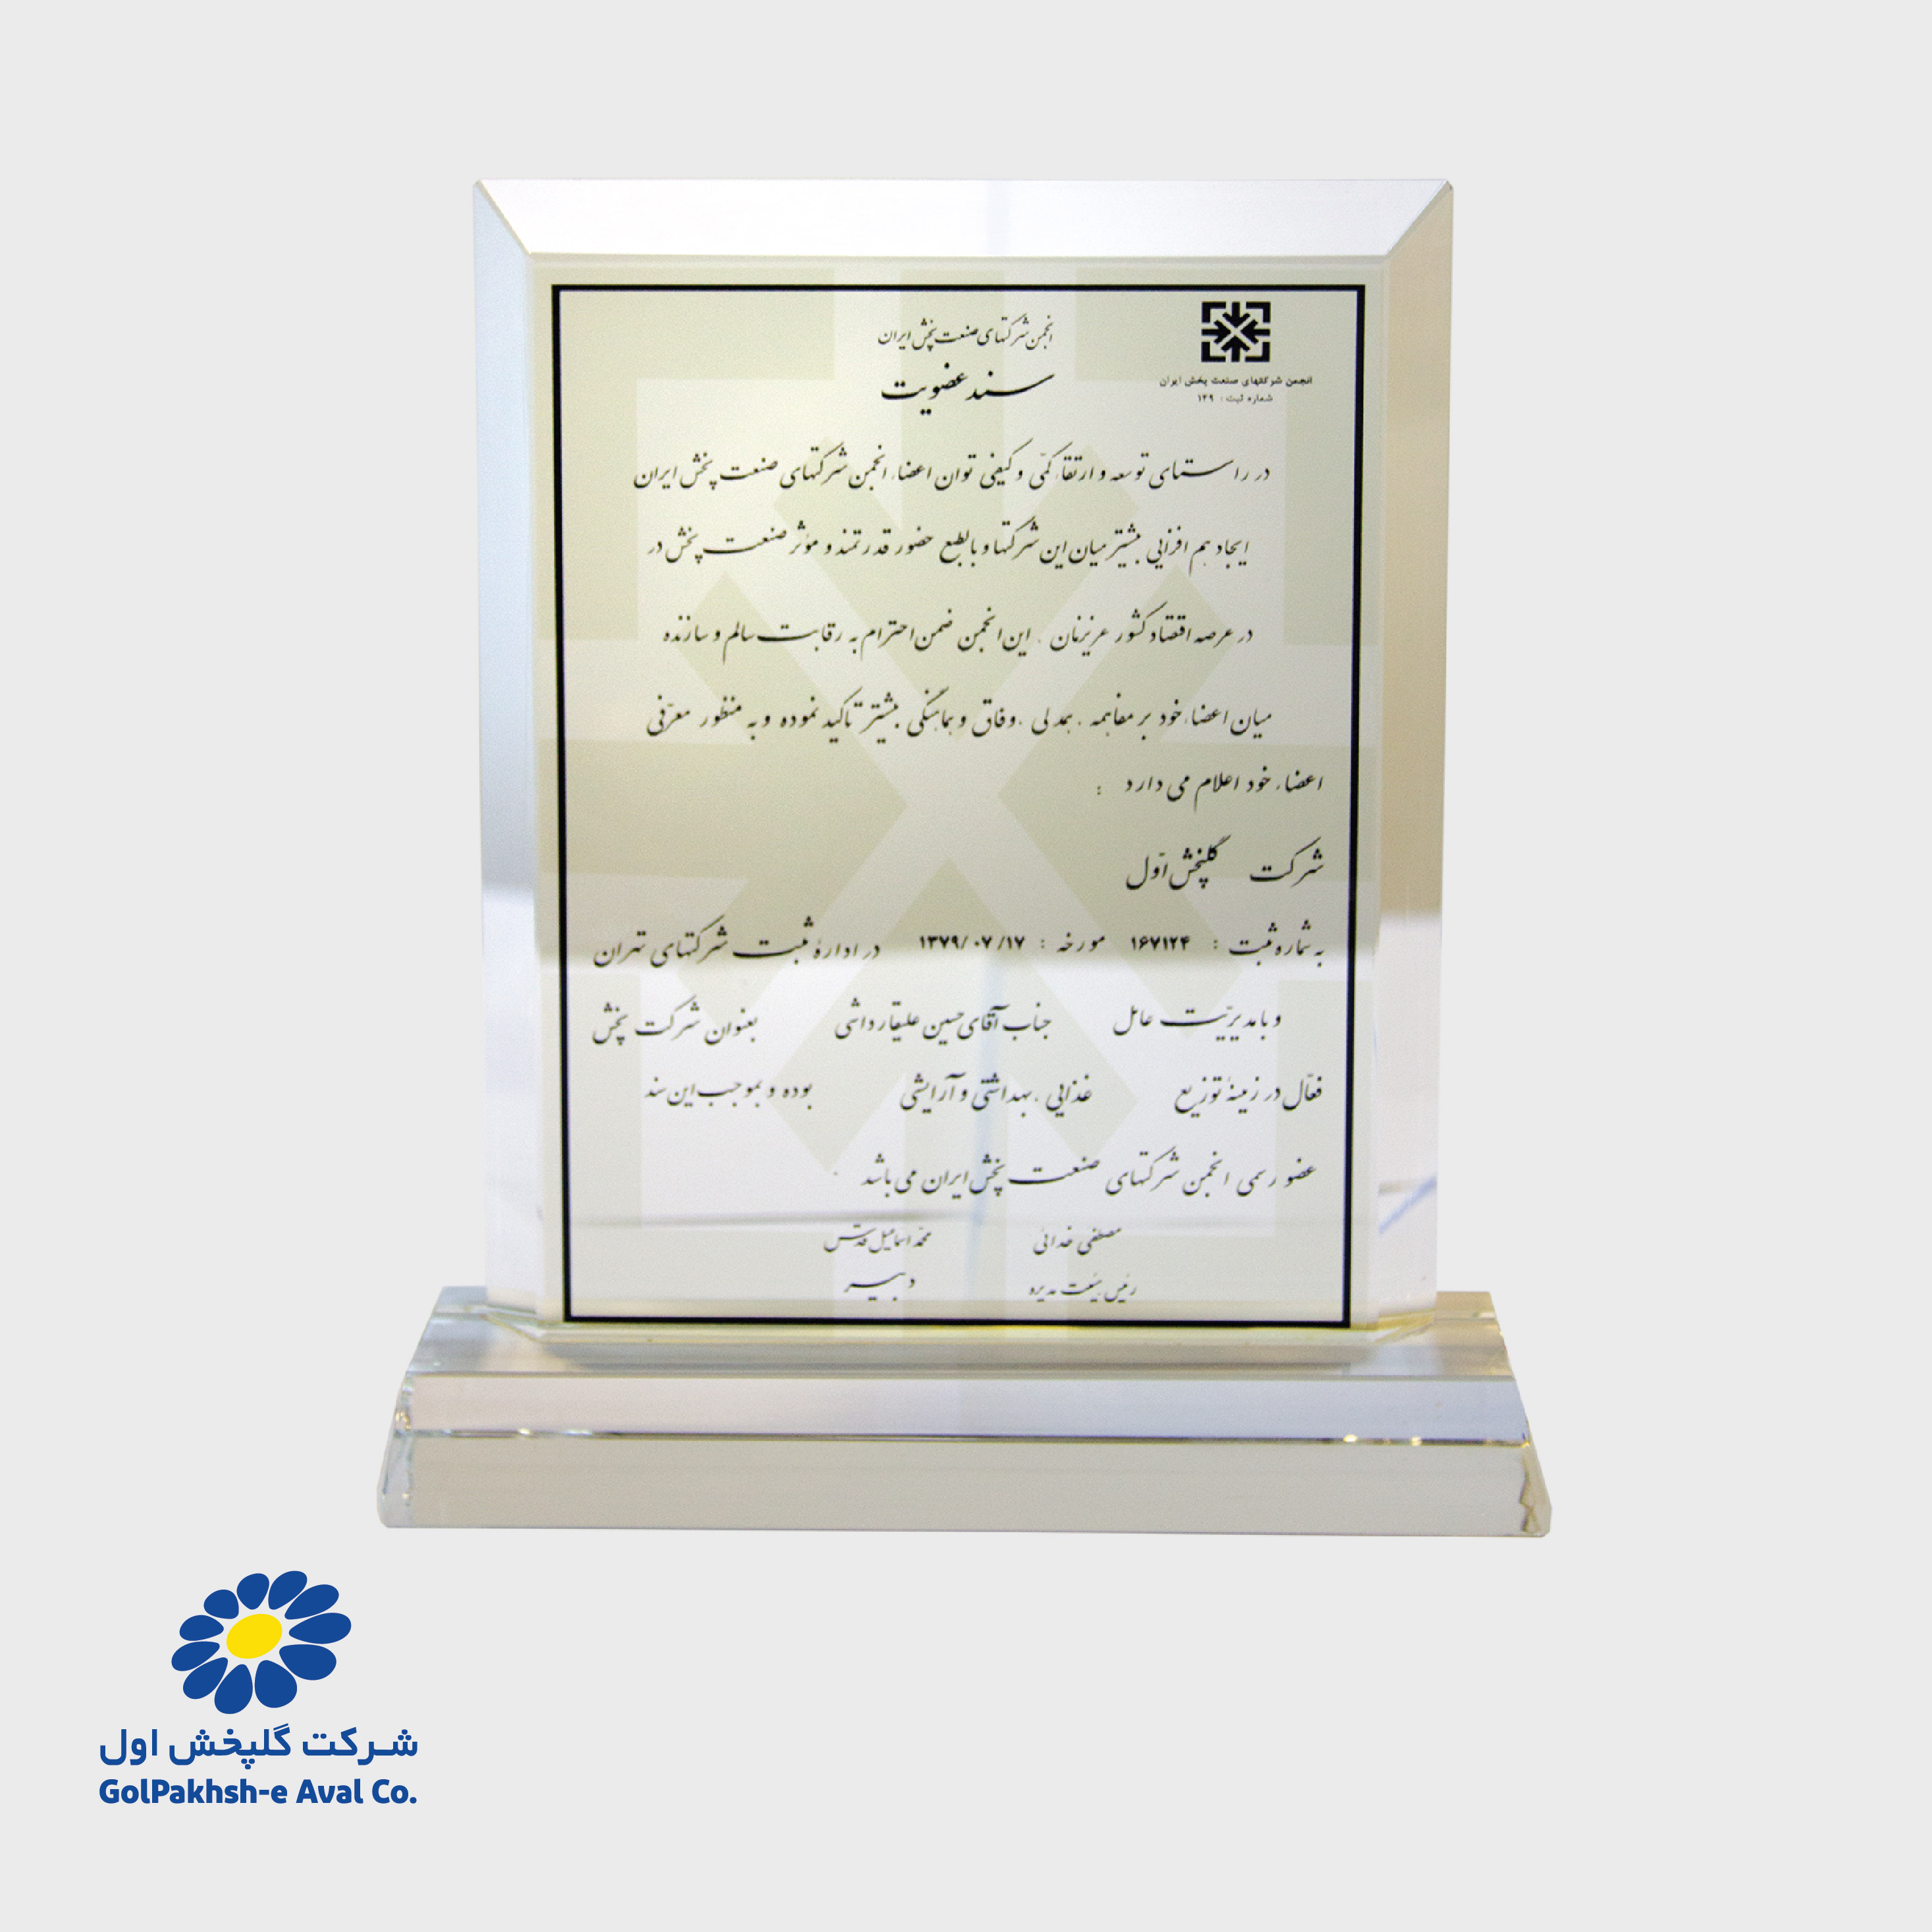 انجمن شرکتهای صنعت پخش ایران
شماره ثبت : ۱۴۹
انجمن شرکتهای صنعت پخش ایران
سند عضویت
در راستای توسعه و ارتقاء کمّی و کیفی توان اعضاء انجمن شرکتهای صنعت پخش ایران
ایجاد هم افزایی بیشتر میان این شرکتها و بالطبع حضور قدرتمند و مؤثر صنعت پخش در
در عرصه اقتصاد کشور عزیزمان ، این انجمن ضمن احترام به رقابت سالم و سازنده
میان اعضاء خود بر مفاهمه ، همدلی ، وفاق و هماهنگی بیشتر تاکید نموده و به منظور معرّفی
اعضاء خود اعلام می دارد :
شرکت گلپخش اوّل
به شماره ثبت : ۱۶۷۱۲۴ مورخه : ۱۳۷۹/۰۷/۱۷ در ادارهٔ ثبت شرکتهای تهران
و با مدیریّت عامل جناب آقای حسین علیقارداشی بعنوان شرکت پخش
فعّال در زمینهٔ توزیع غذایی ، بهداشتی و آرایشی بوده و بموجب این سند
عضو رسمی انجمن شرکتهای صنعت پخش ایران می باشد .
مصطفی خدائی محمّد اسماعیل قدس
رئیس هیئت مدیره دبیر
شرکت گلپخش اول
GolPakhsh-e Aval Co.